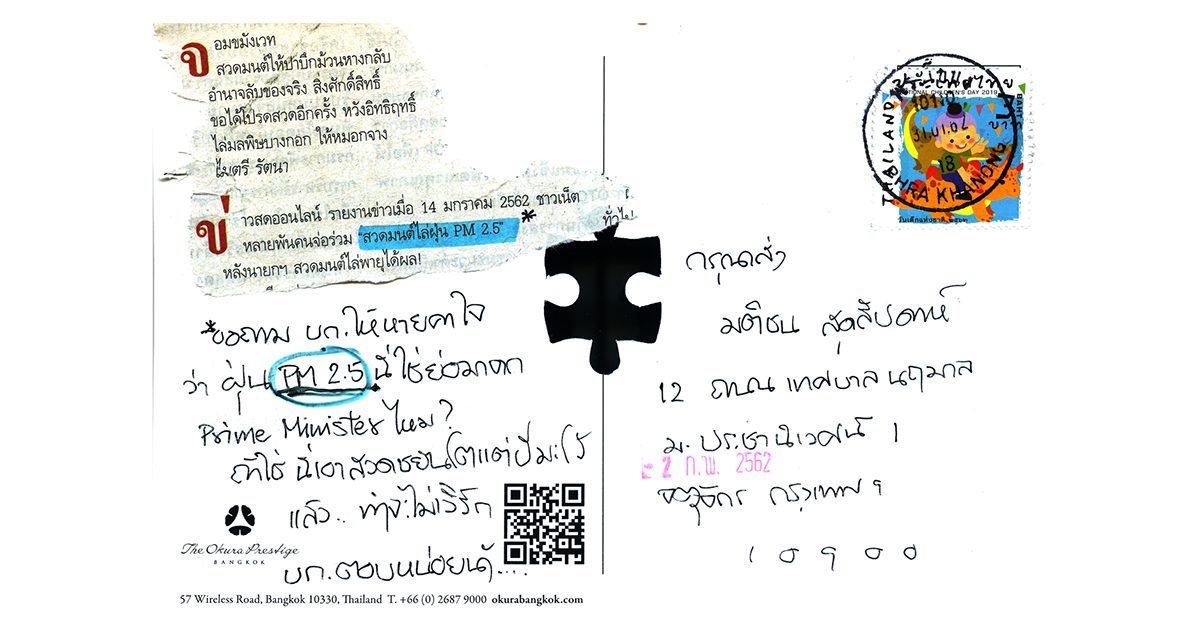 จอมขมังเวท
สวดมนต์ให้ปาบึกม้วนหางกลับ
อำนาจลับของจริง สิ่งศักดิ์สิทธิ์
ขอได้โปรดสวดอีกครั้ง หวังอิทธิฤทธิ์
ไล่มลพิษบางกอก ให้หมอกจาง
ไมตรี รัตนา
ข่าวสดออนไลน์ รายงานข่าวเมื่อ 14 มกราคม 2562 ชาวเน็ต
หลายพันคนจ่อร่วม "สวดมนต์ไล่ฝุ่น PM 2.5" *
หลังนายกฯ สวดมนต์ไล่พายุได้ผล!
ทั่วไป
*ขอถาม บก. ให้หายคาใจ
ว่า ฝุ่น PM 2.5 นี่ใช่ย่อมาจาก
Prime Minister ไหม?
ถ้าใช่ นี่เอาสวดชยันโตแต่ปีมะโว้
แล้ว.. ทำไม่เวิร์ก
บก. ตอบหน่อยน้า....
The Okura Prestige
BANGKOK
57 Wireless Road, Bangkok 10330, Thailand T. +66 (0) 2687 9000 okurabangkok.com
ประเทศไทย
NATIONAL CHILDREN'S DAY 2019
THAILAND
31.01.02
18
PHRA KHANONG
วันเด็กแห่งชาติ ๒๕๖๒
กรุณาส่ง
มติชน สุดสัปดาห์
12 ถนน เทศบาล นฤมาล
ม. ประชานิเวศน์ 1
- 2 ก.พ. 2562
จตุจักร กรุงเทพฯ
10900